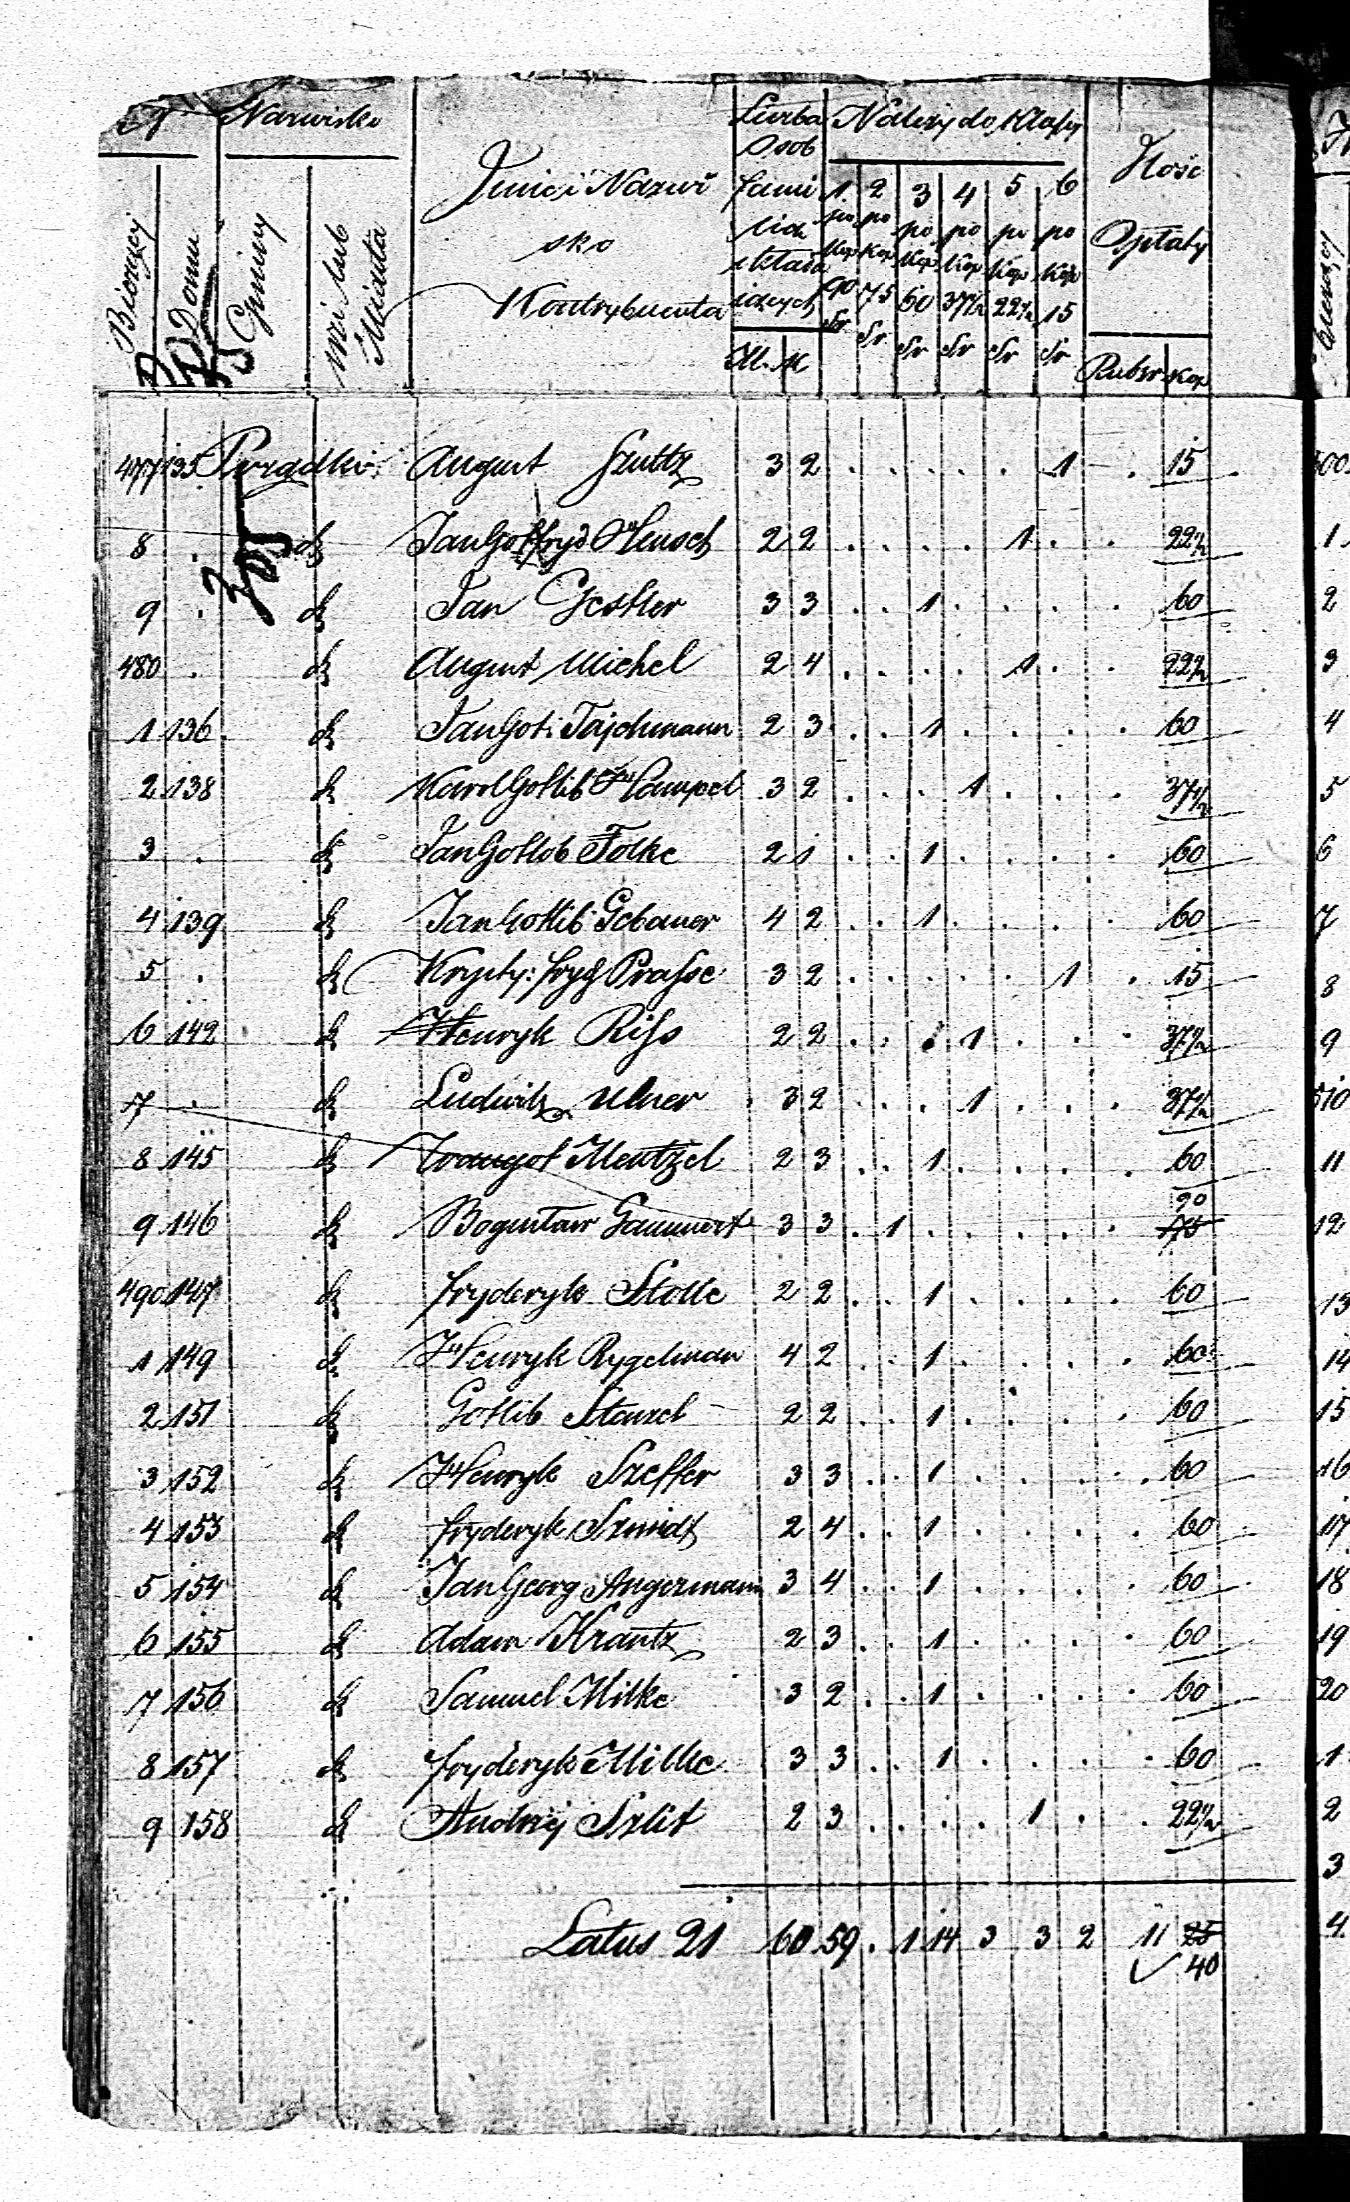 N Nazwisko Liczba Należy do Klasy
Osob
Imie i Nazwi Fami 1. 2 3 4 5 6 Ilość
Bieżący Domu Gminy wsi lub Miasta
sko lich po po po po po po Opłaty
składa kop kop kop kop kop kop
Kontrybuenta iących 90 75 60 37½ 22½ 15
Sr Sr Sr Sr Sr Sr
M. Rubsr kop
477 135 August Szultz 3 2 . . . . . 1 . 15
8 . d Jan Gottfryd Hensch 2 2 . . . . 1 . . 22½
9 . d Jan Gestler 3 3 . . 1 . . . . 60
480 . d August Michel 2 4 . . . . 1 . . 22½
1 136 d Jan Got: Tajchmann 2 3 . . 1 . . . . 60
2 138 d Karol Gottlib Hampel 3 2 . . . 1 . . . 37½
3 . d Jan Gotlob Folke 2 1 . . 1 . . . . 60
4 139 d Jan Gottlib Gebauer 4 2 . . 1 . . . . 60
5 . d Krysty: fryd Prasse 3 2 . . . . . 1 . 15
6 142 d Henryk Riss 2 2 . . . 1 . . . 37½
7 . d Ludwik Ulner 3 2 . . . 1 . . . 37½
8 145 d Traugot Mentzel 2 3 . . 1 . . . . 60
90
9 146 d Bogusław Gammert 3 3 . 1 . . . . . 75
490 147 d fryderyk Stolle 2 2 . . 1 . . . . 60
1 149 d Henryk Rygelman 4 2 . . 1 . . . . 60
2 151 d Gotlib Stanzel 2 2 . . 1 . . . . 60
3 152 d Henryk Szeffer 3 3 . . 1 . . . . 60
4 153 d fryderyk Szmidt 2 4 . . 1 . . . . 60
5 154 d Jan Georg Angermann 3 4 . . 1 . . . . 60
6 155 d Adam Krantz 2 3 . . 1 . . . . 60
7 156 d Samuel Milke 3 2 . . 1 . . . . 60
8 157 d fryderyk Milke 3 3 . . 1 . . . . 60
9 158 d Andrzéj Szlit 2 3 . . . . 1 . . 22½
Latus 21 60 59 . 1 14 3 3 2 11 25
40
500
1
2
3
4
5
6
7
8
9
510
11
12
13
14
15
16
17
18
19
20
1
2
3
4